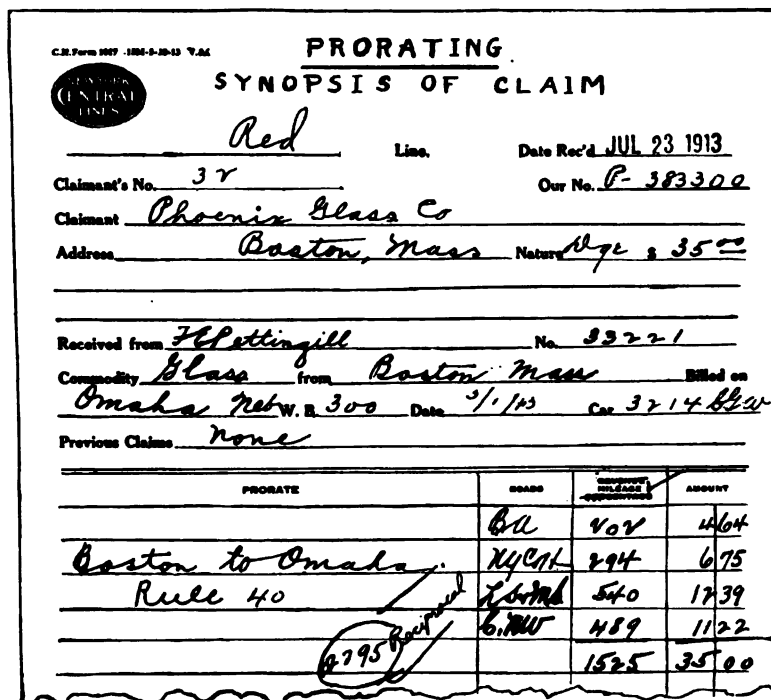 C.H. Form 1017
PRORATING
SYNOPSIS OF CLAIM
CENTRAL
LINES
Red Line. Date Rec'd JUL 23 1913
Claimant's No. 32 Our No. P-383300
Claimant Phoenix Glass Co
Address Boston, Mass Nature Dge $ 35 00
Received from F C Pettingill No. 33221
Commodity Glass from Boston Mass Billed on
Omaha Neb W. B. 300 Date 3/1/13 Car 3214
Previous Claims None
PRORATE ROADS MILEAGE AMOUNT
BA 202 4 64
Boston to Omaha. NYC 294 6 75
Rule 40 540 12 39
2795 Reciprocal C.NW 489 11 22
1525 35 00